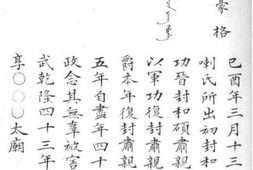 豪格
己酉年三月十三
喇氏所出初封和
功晉封和碩肅親
以軍功復封肅親
爵本年復封肅親
五年自盡年四十
政念其無辜被害
武乾隆四十三年
享○○○太廟